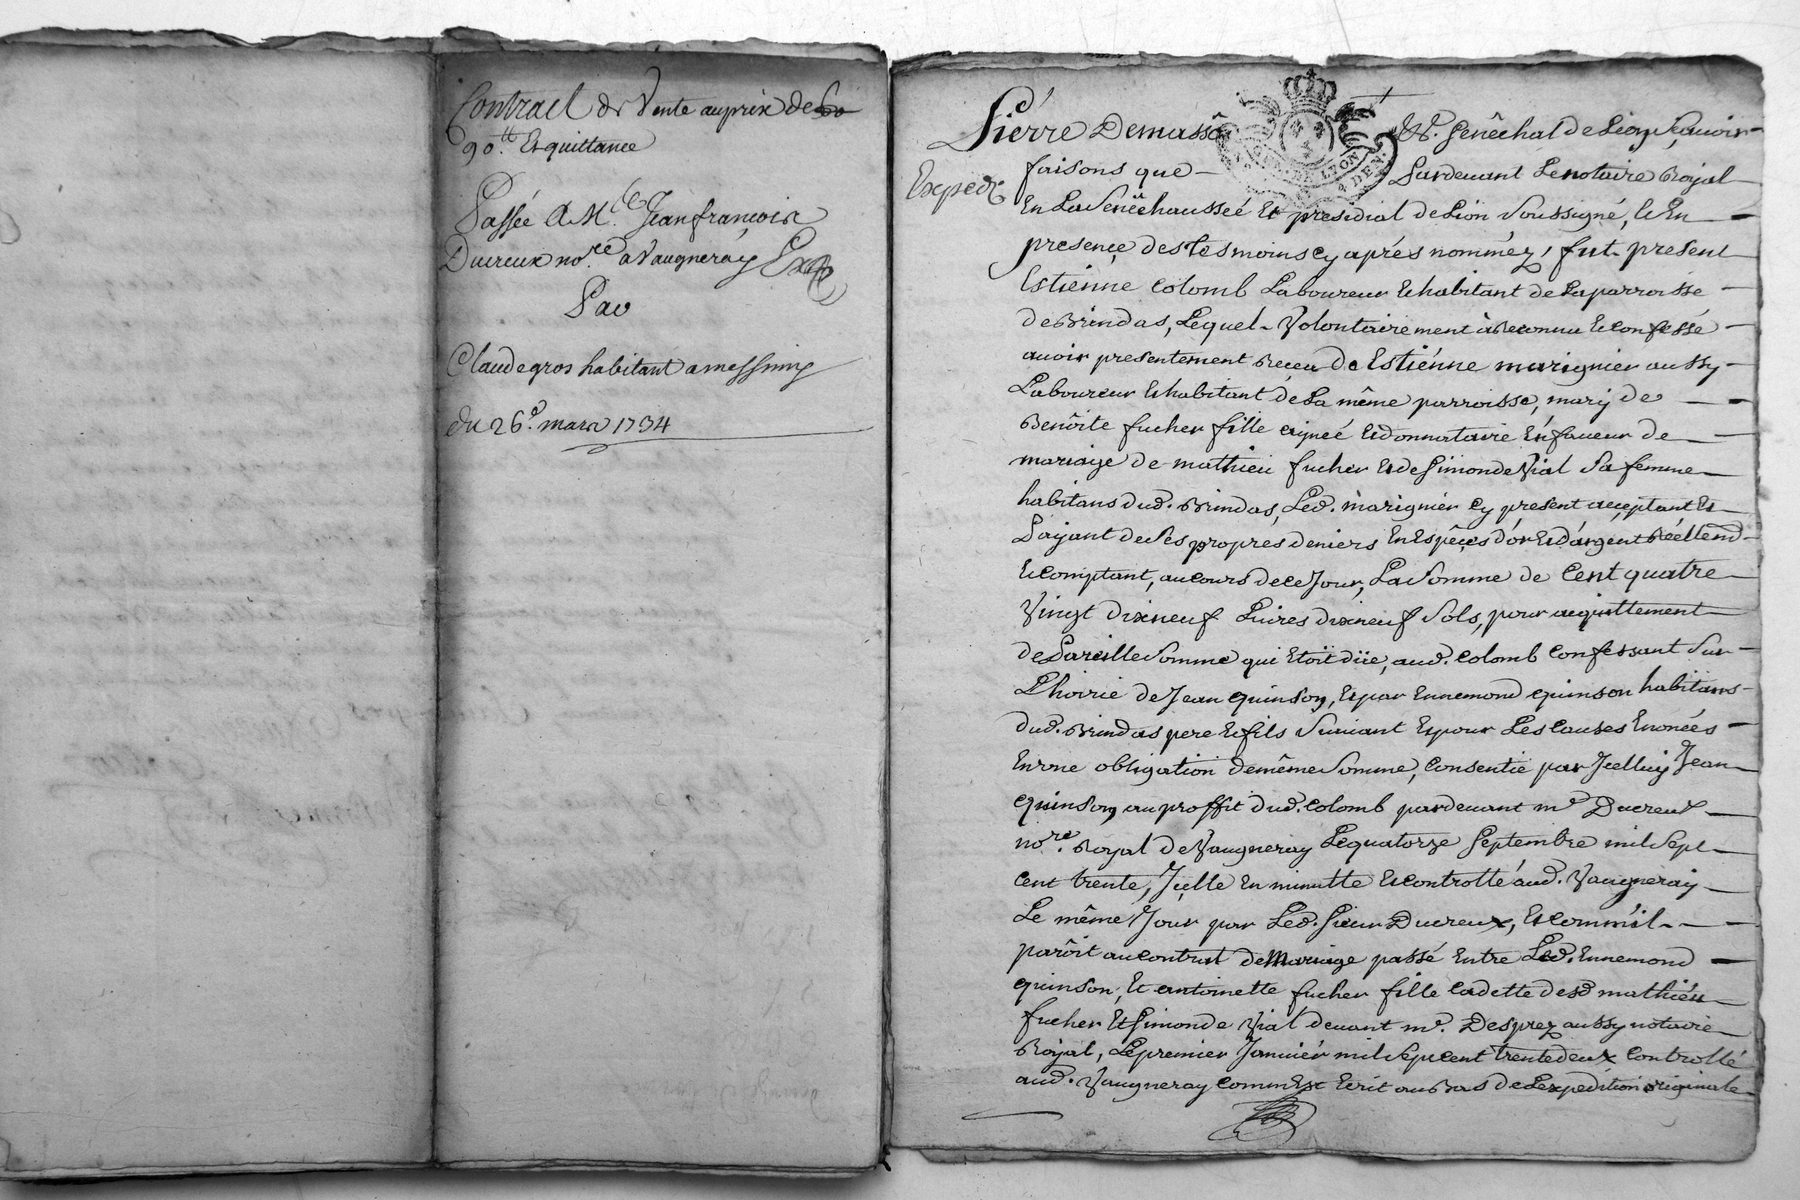 Contract de Vente au prix de
90.tt Et quittance
Passée A M.e Jean françois
Ducreux no.re a Vaugneray
Par
Claude gros habitant a messimy
du 26.e mars 1734
Pierre Demasso Sénêchal de Lion, scavoir
Expedié
faisons que Pardevant Le notaire Royal
En La Senêchausseé Et presidial de Lion Soussigné, Et En
presençe des tesmoins cy aprés nomméz, fut present
Estienne Colomb Laboureur Et habitant de La parroisse
de Brindas, Lequel Volontairement à Reconnu Et Confessé
auoir presentement Receu de Estiénne marignier aussy
Laboureur Et habitant de La même parroisse, mary de
Benôite fucher fille aigneé Et donnataire En faueur de
mariage de mathieu fucher Et de Simonde Vial Sa femme
habitans dud. Brindas, Led. marignier Cy present acceptant Et
Payant de Ses propres deniers En Espêçes d'or Et d'argent Réellem.t
Et comptant, au cours de ce Jour, La Somme de Cent quatre
Vingt dixneuf Liures dixneuf Sols, pour acquittement
de Pareille Somme qui Etoit düe, aud. Colomb Confessant Sur
L'hoirie de Jean quinson, Et par Ennemond quinson habitans
dud. Brindas pere Et fils Suiuant Et pour Les Causes Enonçées
En une obligation de même Somme, Consentie par Jcelluy Jean
quinson au proffit dud. Colomb pardeuant m.e Ducreux
no.re Royal de Vaugneray Le quatorze Septembre mil Sept
cent trente, Jçelle En minutte Et Controllé aud. Vaugneray
Le même Jour par Led. Sieur Ducreux, Et comm'il
parôit au Contrat de Mariage passé Entre Led. Ennemond
quinson, Et antoinette fucher fille Cadette desd. mathieu
fucher Et Simonde Vial deuant m.e Desprez aussy notaire
Royal, Le premier Januiér mil Sept cent trente deux Controllé
aud. Vaugneray Comm Est Ecrit au Bas de L'expedition originale